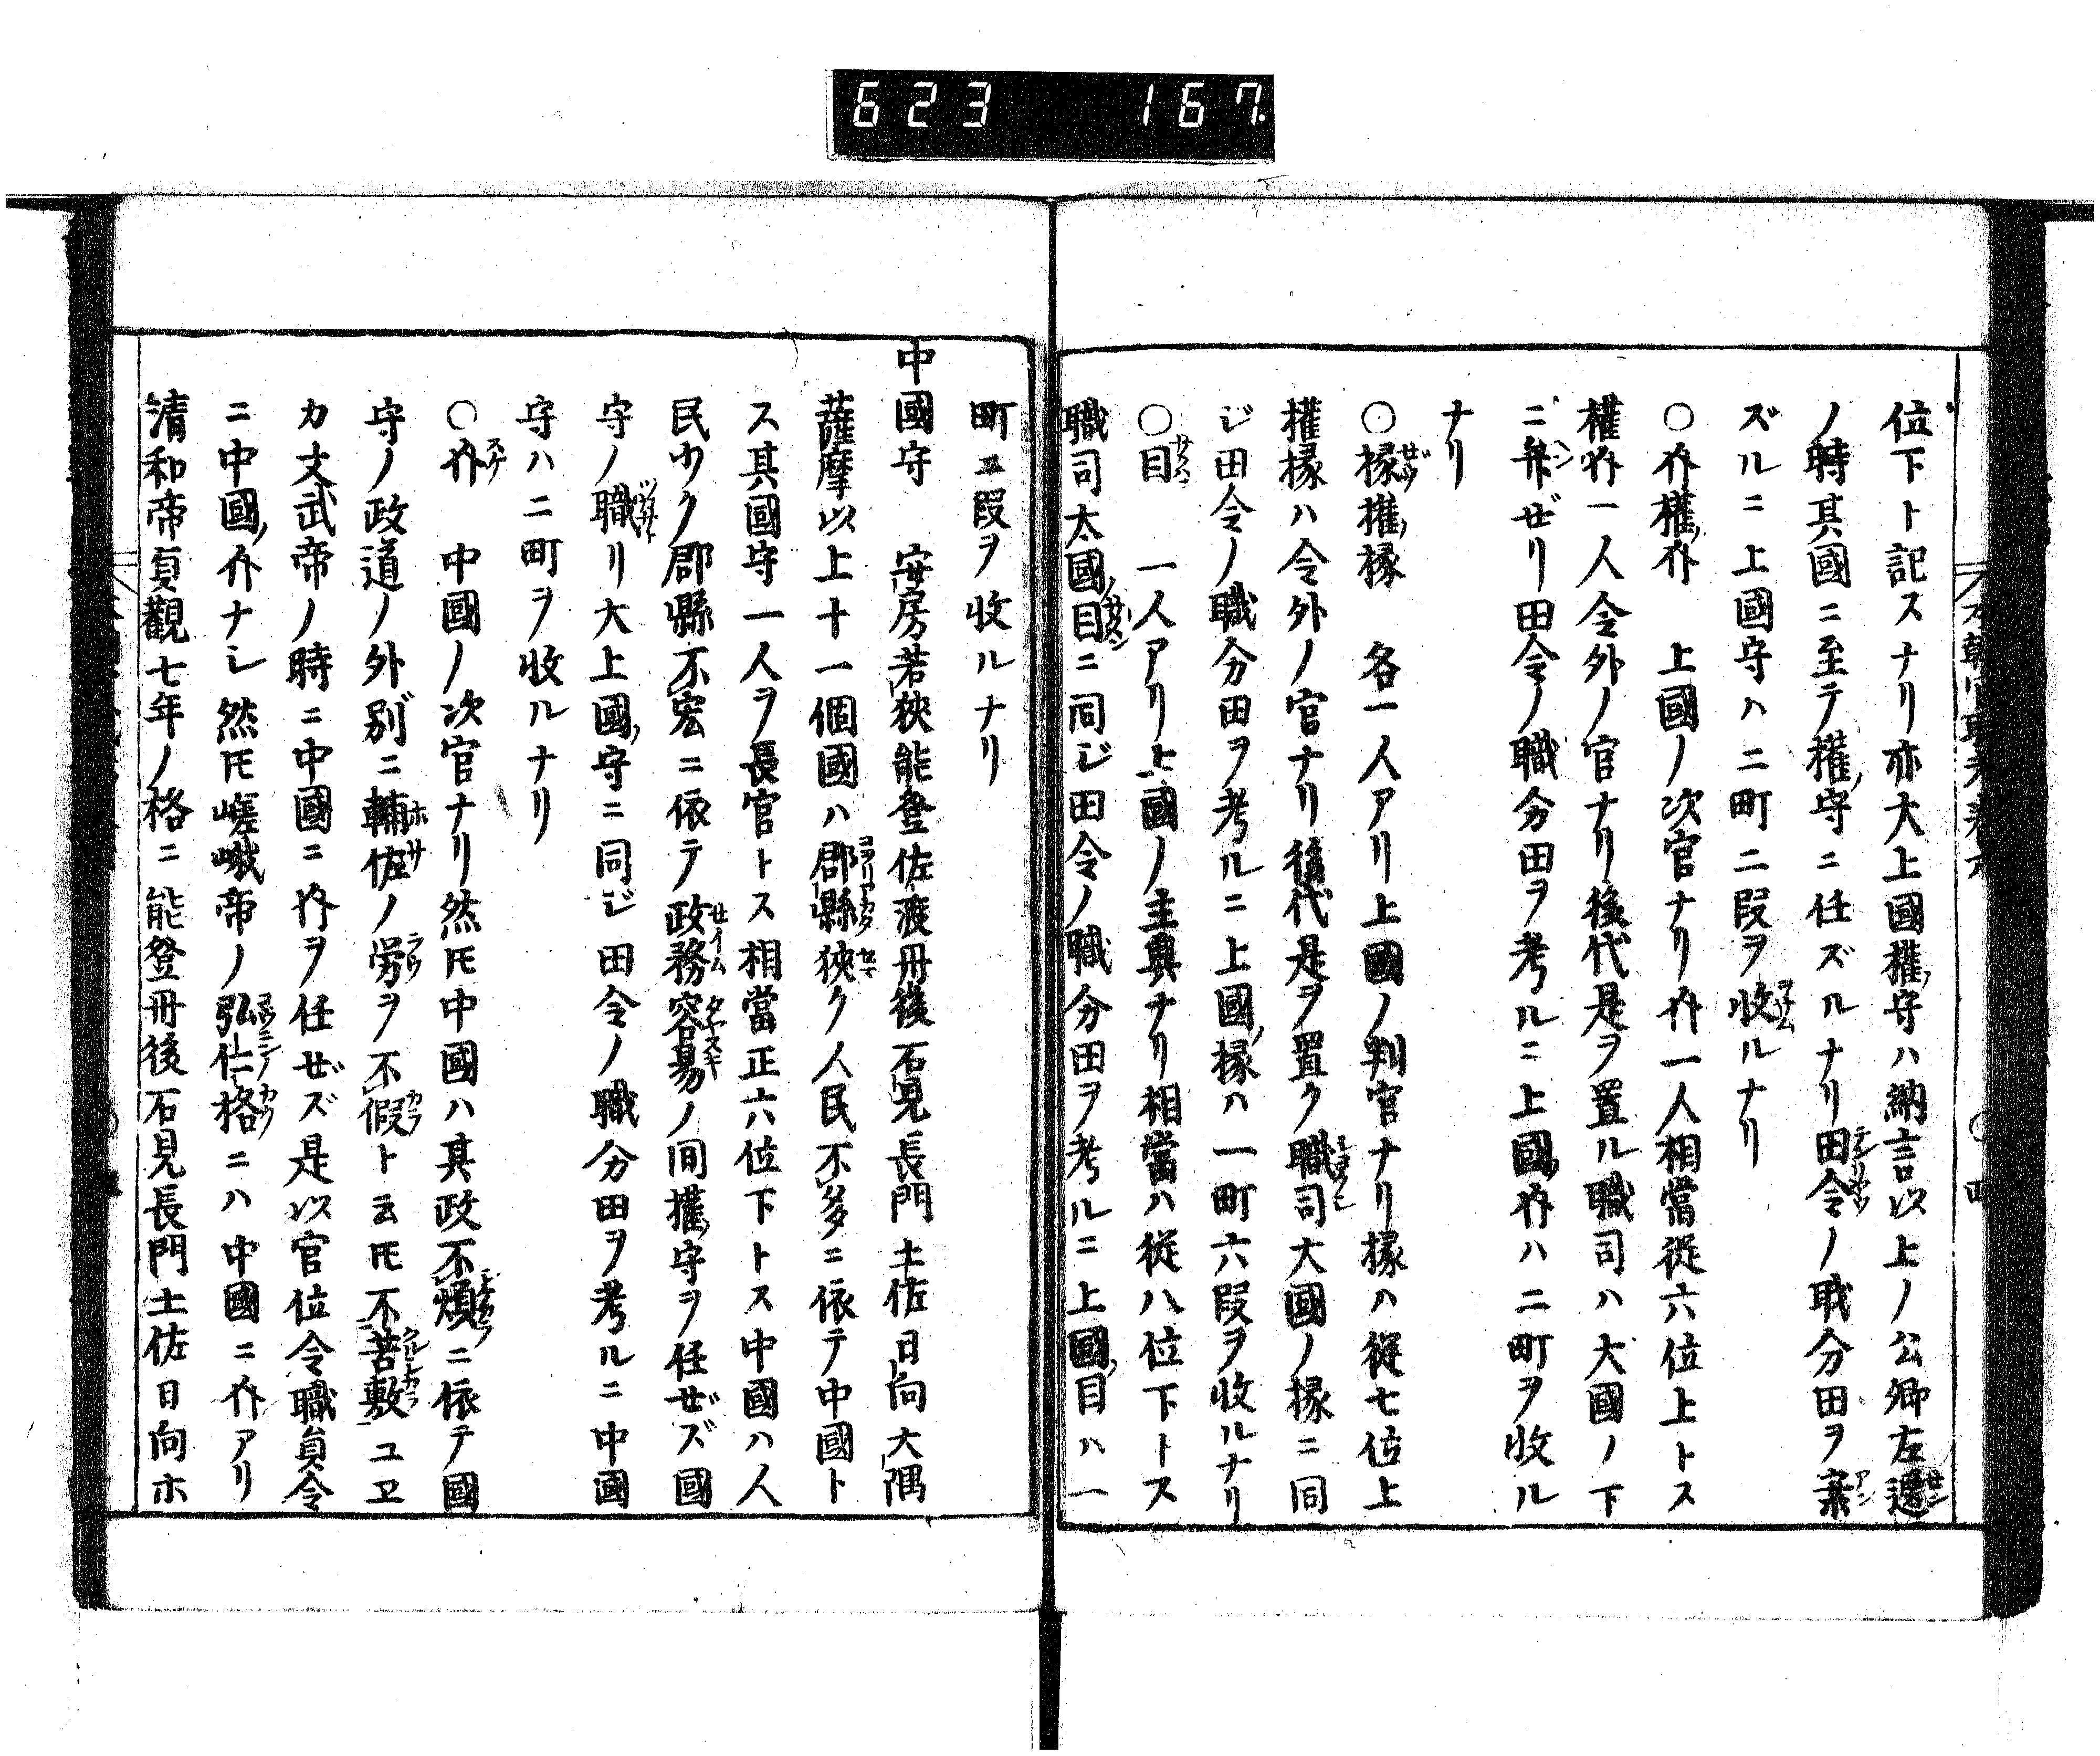 623 167.
位下ト記スナリ亦大上國權守ハ納言以上ノ公卿左遷
ノ時其國ニ至テ權守ニ任ズルナリ田令ノ職分田ヲ案
ズルニ上國守ハ二町二段ヲ收ルナリ
○介權介 上國ノ次官ナリ介一人相當從六位上トス
權介一人令外ノ官ナリ後代是ヲ置ル職司ハ大國ノ下
ニ弁ぜリ田令ノ職分田ヲ考ルニ上國介ハ二町ヲ收ル
ナリ
○掾權掾 各一人アリ上國ノ判官ナリ掾ハ從七位上
權掾ハ令外ノ官ナリ後代是ヲ置ク職司大國ノ掾ニ同
ジ田令ノ職分田ヲ考ルニ上國掾ハ一町六段ヲ收ルナリ
○目 一人アリ上國ノ主典ナリ相當ハ從八位下トス
職司太國目ニ同ジ田令ノ職分田ヲ考ルニ上國目ハ一
町二段ヲ收ルナリ
中國守 安房若狹能登佐渡丹後石見長門土佐日向大隅
薩摩以上十一個國ハ郡縣狹ク人民不多ニ依テ中國ト
ス其國守一人ヲ長官トス相當正六位下トス中國ハ人
民少ク郡縣不宏ニ依テ政務容易ノ间權守ヲ任ぜズ國
守ノ職リ大上國守ニ同ジ田令ノ職分田ヲ考ルニ中國
守ハ二町ヲ收ルナリ
○介 中國ノ次官ナリ然𪜈中國ハ其政不煩ニ依テ國
守ノ政道ノ外別ニ輔佐ノ労ヲ不假ト云𪜈不苦敷ユヱ
カ文武帝ノ時ニ中國ニ介ヲ任ぜズ是以官位令職員令
ニ中國介ナシ然𪜈嵯峨帝ノ弘仁格ニハ中國ニ介アリ
清和帝貞觀七年ノ格ニ能登丹後石見長門土佐日向ホ